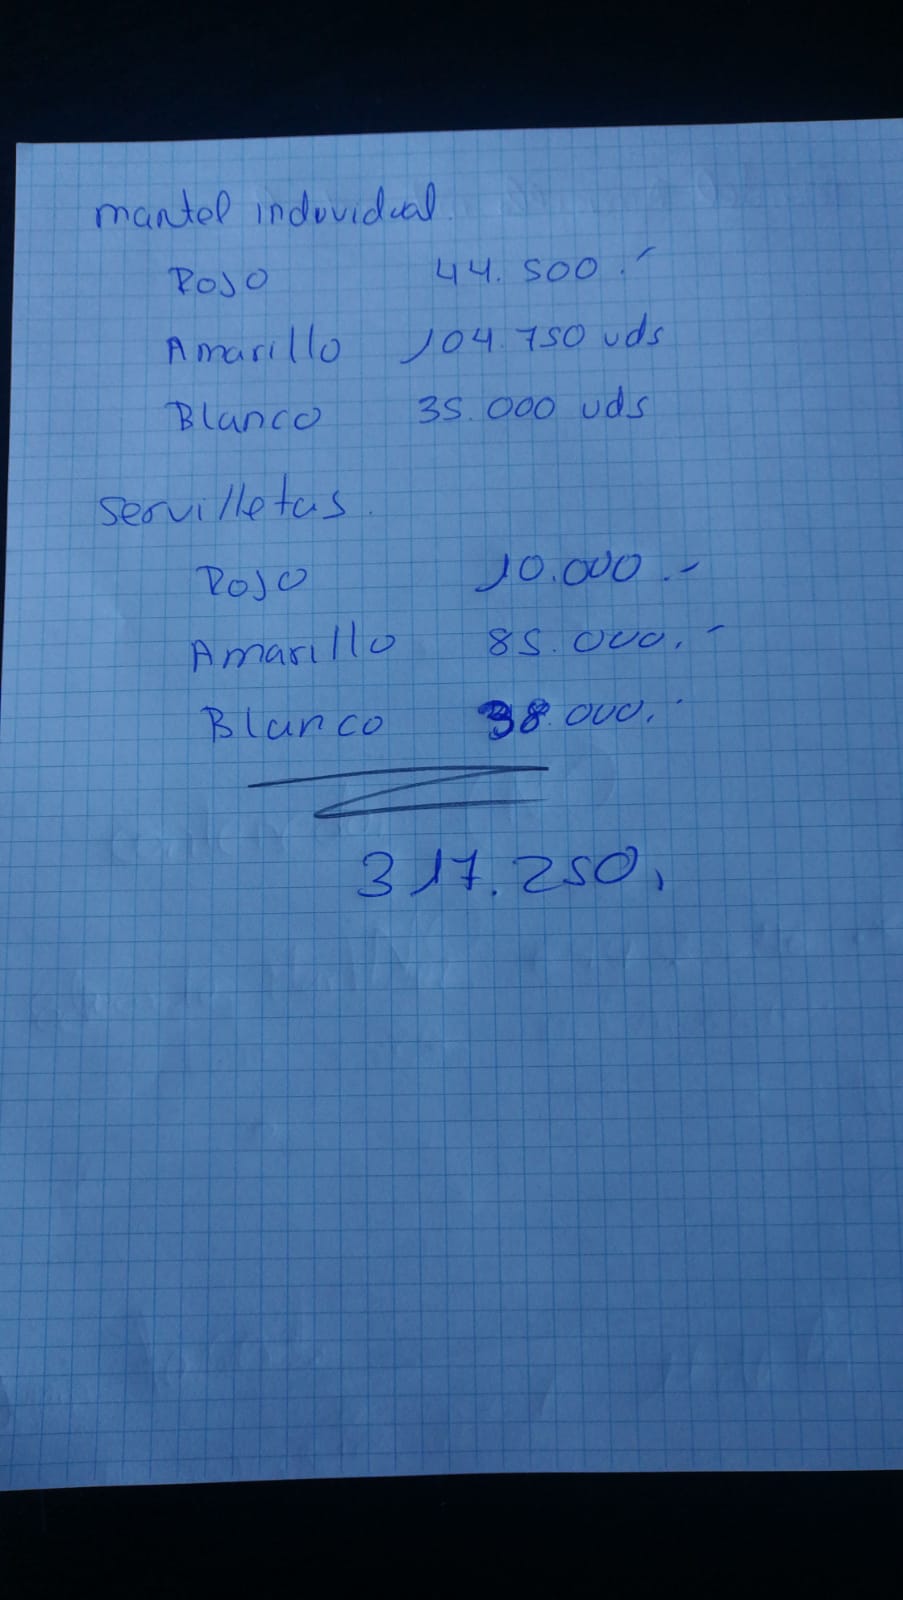 mantel individual.
Rojo 44.500.-
Amarillo 104.750 uds
Blanco 35.000 uds
Servilletas.
Rojo 10.000.-
Amarillo 85.000.-
Blanco 38.000.-
317.250,